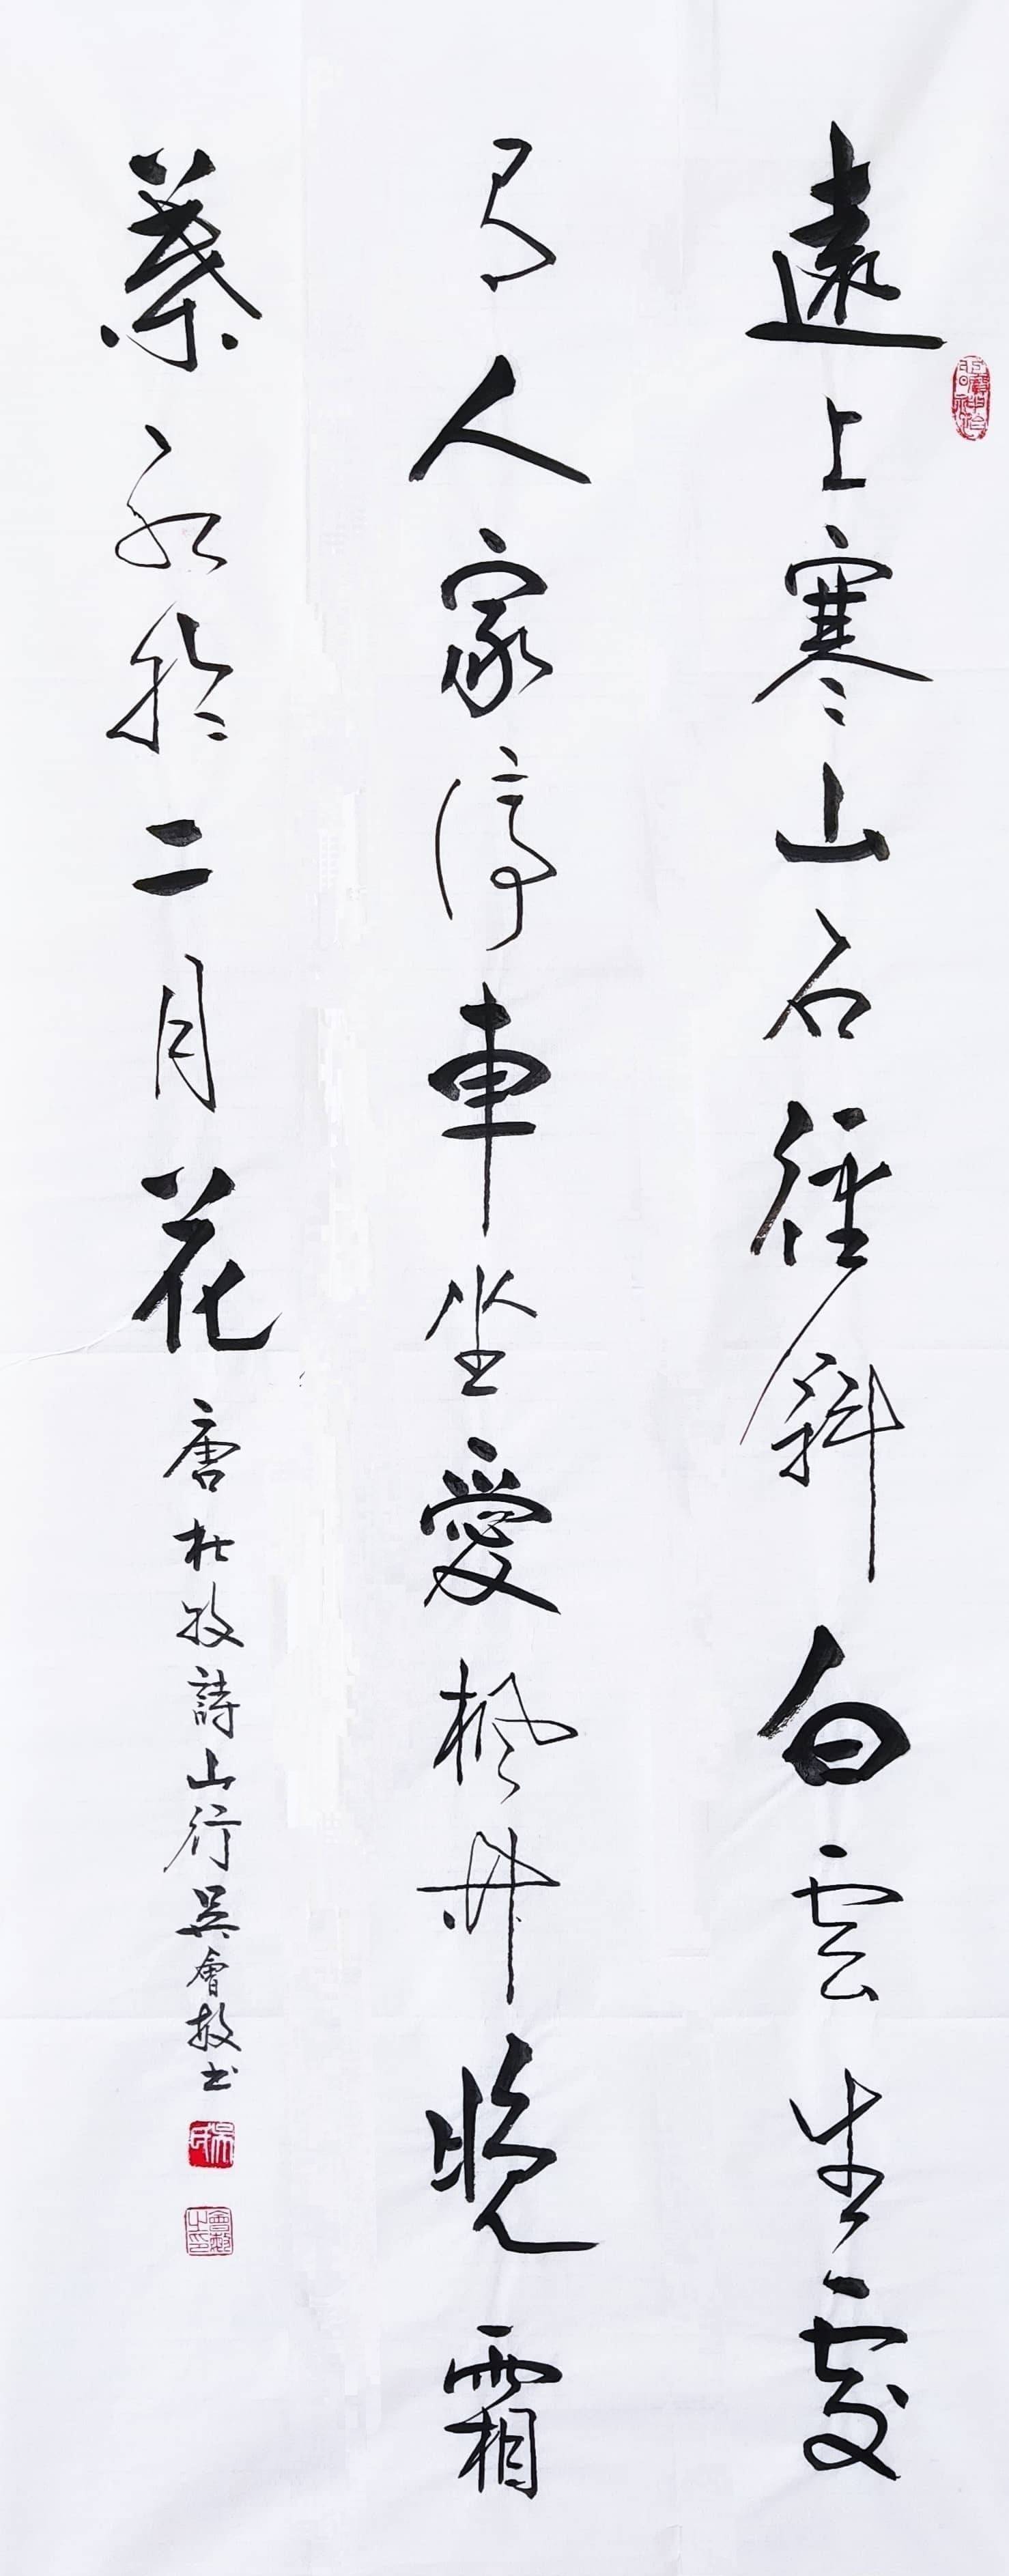 遠上寒山石徑斜白雲生處
有人家停車坐愛楓林晚霜
葉紅於二月花
唐杜牧詩山行吳會書
吳氏